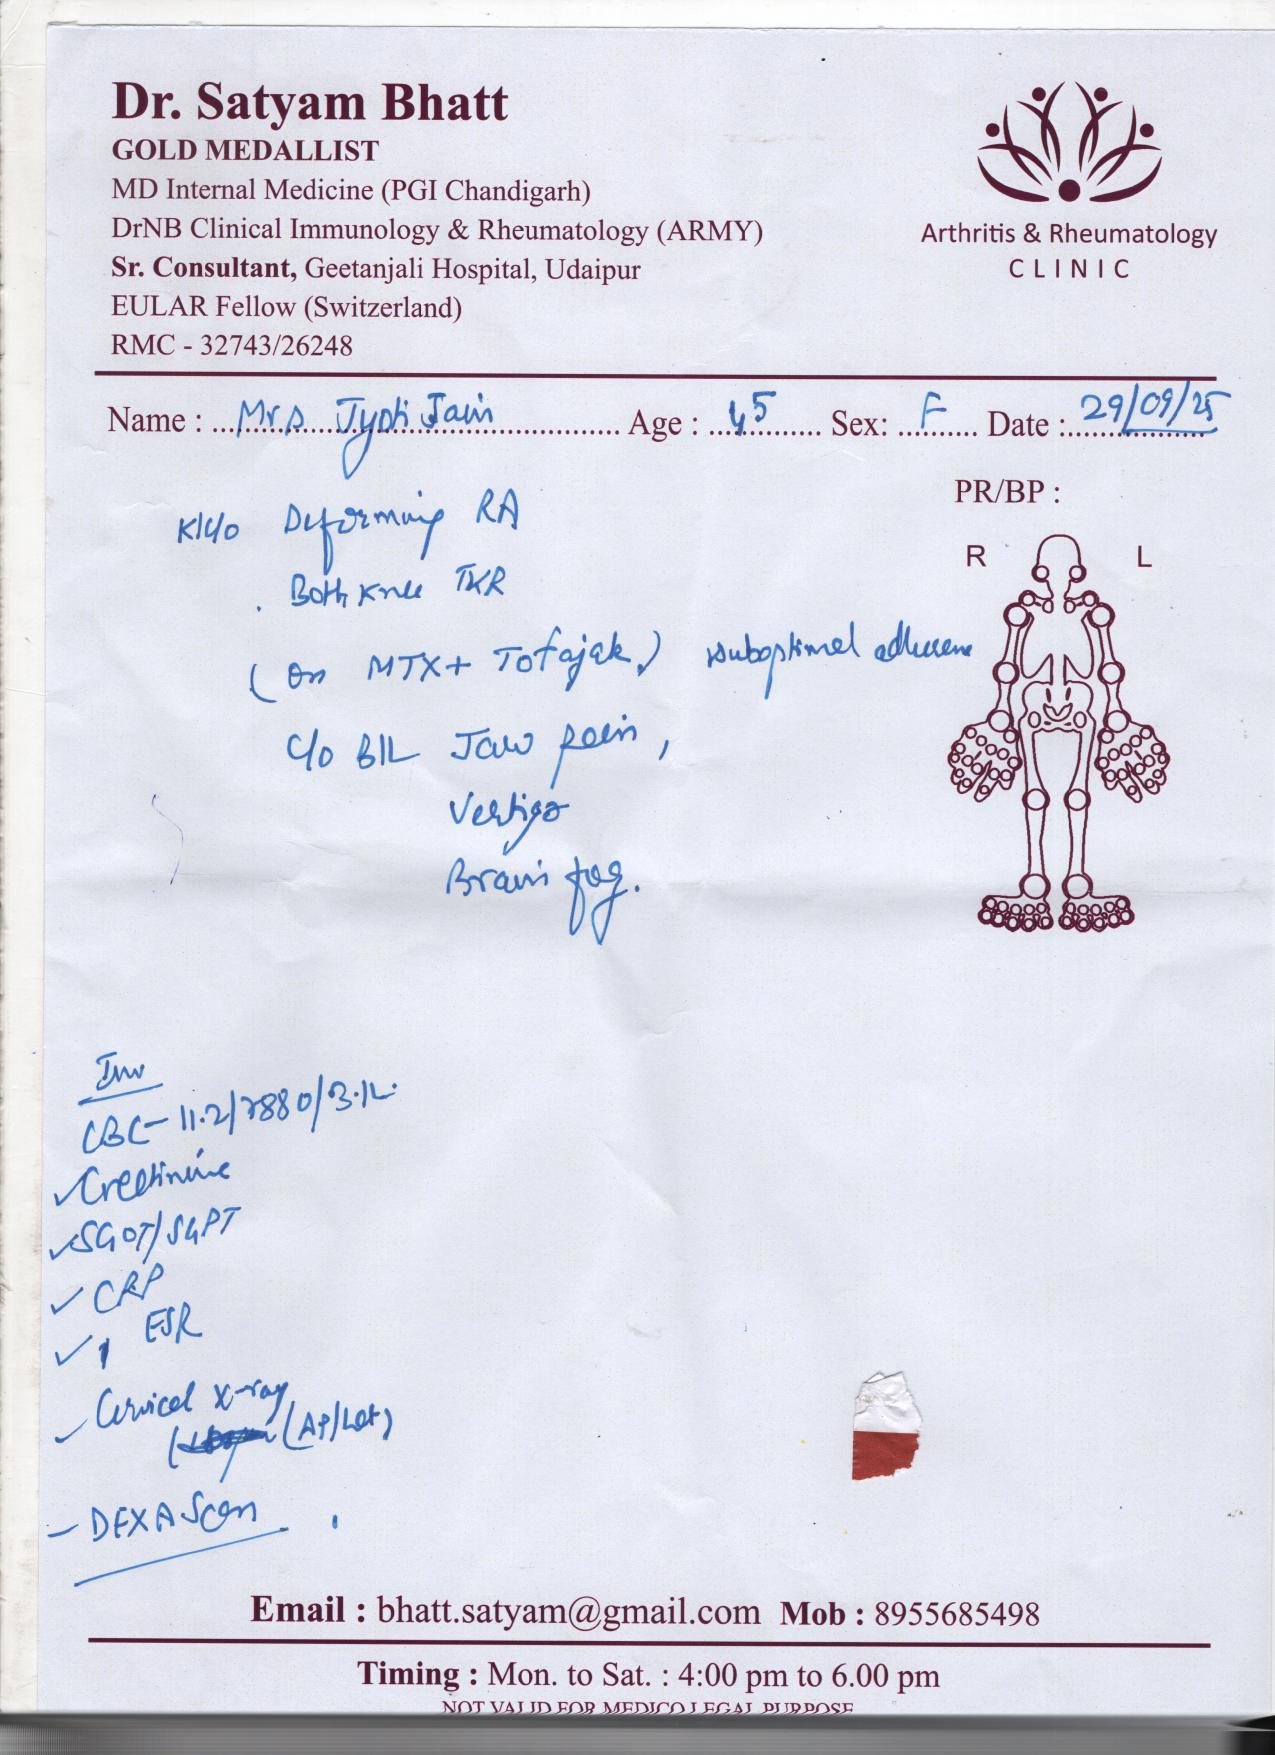 Dr. Satyam Bhatt
GOLD MEDALLIST
MD Internal Medicine (PGI Chandigarh)
DrNB Clinical Immunology & Rheumatology (ARMY)
Sr. Consultant, Geetanjali Hospital, Udaipur
EULAR Fellow (Switzerland)
RMC - 32743/26248
Arthritis & Rheumatology
CLINIC
Name : Mrs Jyoti Jain Age : 45 Sex: F Date : 29/09/25
PR/BP :
R L
K/c/o Deforming RA
. Both Knee TKR
(on MTX+ Tofajak) suboptimal adherence
C/o B/L Jaw pain,
Vertigo
Brain fog.
Inv
CBC- 11.2/7880/3.1L.
✓Creatinine
✓SGOT/SGPT
✓ CRP
✓ ESR
- Cervical x-ray
(AP/Lat)
- DEXA Scan
Email : bhatt.satyam@gmail.com Mob : 8955685498
Timing : Mon. to Sat. : 4:00 pm to 6.00 pm
NOT VALID FOR MEDICO LEGAL PURPOSE